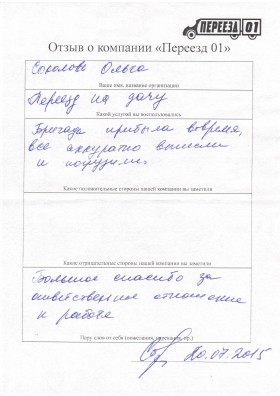 ПЕРЕЕЗД 01
Отзыв о компании «Переезд 01»
Соколова Ольга
Ваше имя, название организации
Переезд на дачу
Какой услугой вы воспользовались
Бригада прибыла вовремя,
все аккуратно вынесли
и погрузили.
Какие положительные стороны нашей компании вы заметили
Какие отрицательные стороны нашей компании вы заметили
Большое спасибо за
ответственное отношение
к работе
Пару слов от себя (пожелания,
20.07.2015